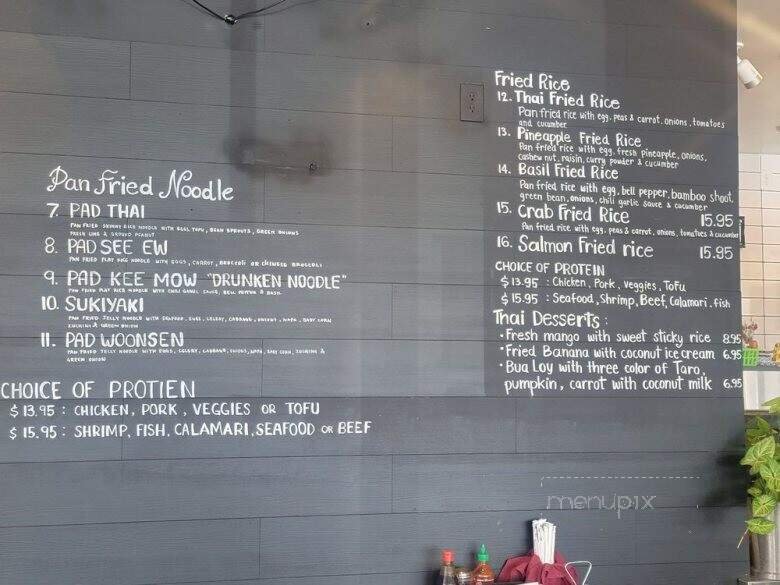 Pan Fried Noodle
7. PAD THAI
PAN FRIED SKINNY RICE NOODLE WITH EGGS, TOFU, BEAN SPROUTS, GREEN ONIONS
FRESH LIME & GROUND PEANUT
8. PAD SEE EW
PAN FRIED FLAT RICE NOODLE WITH EGGS, CARROT, BROCCOLI OR CHINESE BROCCOLI
9. PAD KEE MOW "DRUNKEN NOODLE"
PAN FRIED FLAT RICE NOODLE WITH CHILI GARLIC SAUCE, BELL PEPPER & BASIL
10. SUKIYAKI
PAN FRIED JELLY NOODLE WITH SEAFOOD, EGGS, CELERY, CABBAGE, ONIONS, NAPA, BABY CORN
ZUCHINI & GREEN ONION
11. PAD WOONSEN
PAN FRIED JELLY NOODLE WITH EGGS, CELERY, CABBAGE, ONIONS, NAPA, BABY CORN, ZUCHINI &
GREEN ONION
CHOICE OF PROTIEN
$ 13.95 : CHICKEN, PORK, VEGGIES OR TOFU
$ 15.95 : SHRIMP, FISH, CALAMARI, SEAFOOD OR BEEF
Fried Rice
12. Thai Fried Rice
Pan fried rice with egg, peas & carrot, onions, tomatoes
and cucumber
13. Pineapple Fried Rice
Pan fried rice with egg, fresh pineapple, onions,
cashew nut, raisin, curry powder & cucumber
14. Basil Fried Rice
Pan fried rice with egg, bell pepper, bamboo shoot,
green bean, onions, chili garlic sauce & cucumber
15. Crab Fried Rice 15.95
Pan fried rice with egg, peas & carrot, onions, tomatoes & cucumber
16. Salmon Fried rice 15.95
CHOICE OF PROTEIN
$ 13.95 : Chicken, Pork, Veggies, Tofu
$ 15.95 : Seafood, Shrimp, Beef, Calamari, fish
Thai Desserts :
• Fresh mango with sweet sticky rice 8.95
• Fried Banana with coconut ice cream 6.95
• Bua Loy with three color of Taro,
pumpkin, carrot with coconut milk 6.95
menupix